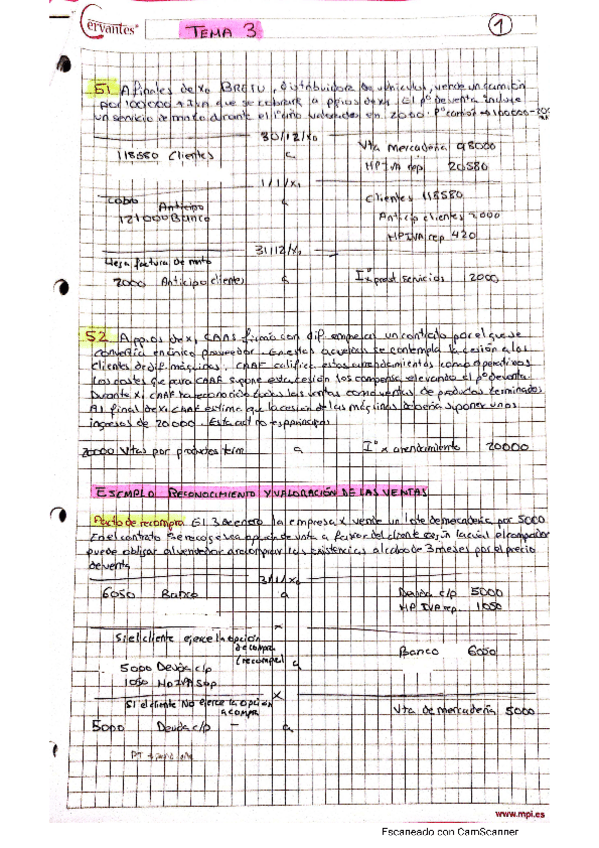 Cervantes®
TEMA 3
1
51 A finales de X0 BRETU, distribuidora de vehículos, vende un camión
por 100000 + IVA que se cobrará a ppios de X1. El pº de venta incluye
un servicio de mnto durante el 1º año valorado en 2000. Pº camión → 100000-
30/12/X0
118580 Clientes a Vta Mercadería 98000
HP IVA rep 20580
1/1/X1
Cobro Anticipo
121000 Banco a Clientes 118580
Anticip clientes 2000
HP IVA rep 420
31/12/X1
factura de mnto
2000 Anticipo clientes a Iº x prest servicios 2000
52 A ppios de X1 CAAF firmó con dif. empresas un contrato por el que se
convertía en único proveedor. En estos acuerdos se contempla la cesión a los
clientes de dif. máquinas. CAAF califica estos arrendamientos como operativos
Los costes que para CAAF supone esta cesión los compensa elevando el pº de venta
Durante X1 CAAF ha reconocido todas las ventas como ventas de productos terminados
Al final de X1 CAAF estima que la cesión de las máquinas debería suponer unos
ingresos de 20000. Esta act no es principal
20000 Vtas por productos term a Iº x arrendamiento 20000
EJEMPLO RECONOCIMIENTO Y VALORACIÓN DE LAS VENTAS
Pacto de recompra El 3 de enero la empresa X vende un lote de mercadería por 5000
En el contrato se recoge una opción de vta a favor del cliente según la cual el comprador
puede obligar al vendedor a recomprar las existencias al cabo de 3 meses por el precio
de venta
3/1/X0
6050 Banco a Deuda c/p 5000
HP IVA rep. 1050
X
Si el cliente ejerce la opción
de compra
(recompra)
5000 Deuda c/p a Banco 6050
1050 HP IVA Sop
X
Si el cliente NO ejerce la opción
a compra
5000 Deuda c/p a Vta de mercadería 5000
www.mpi.es
Escaneado con CamScanner